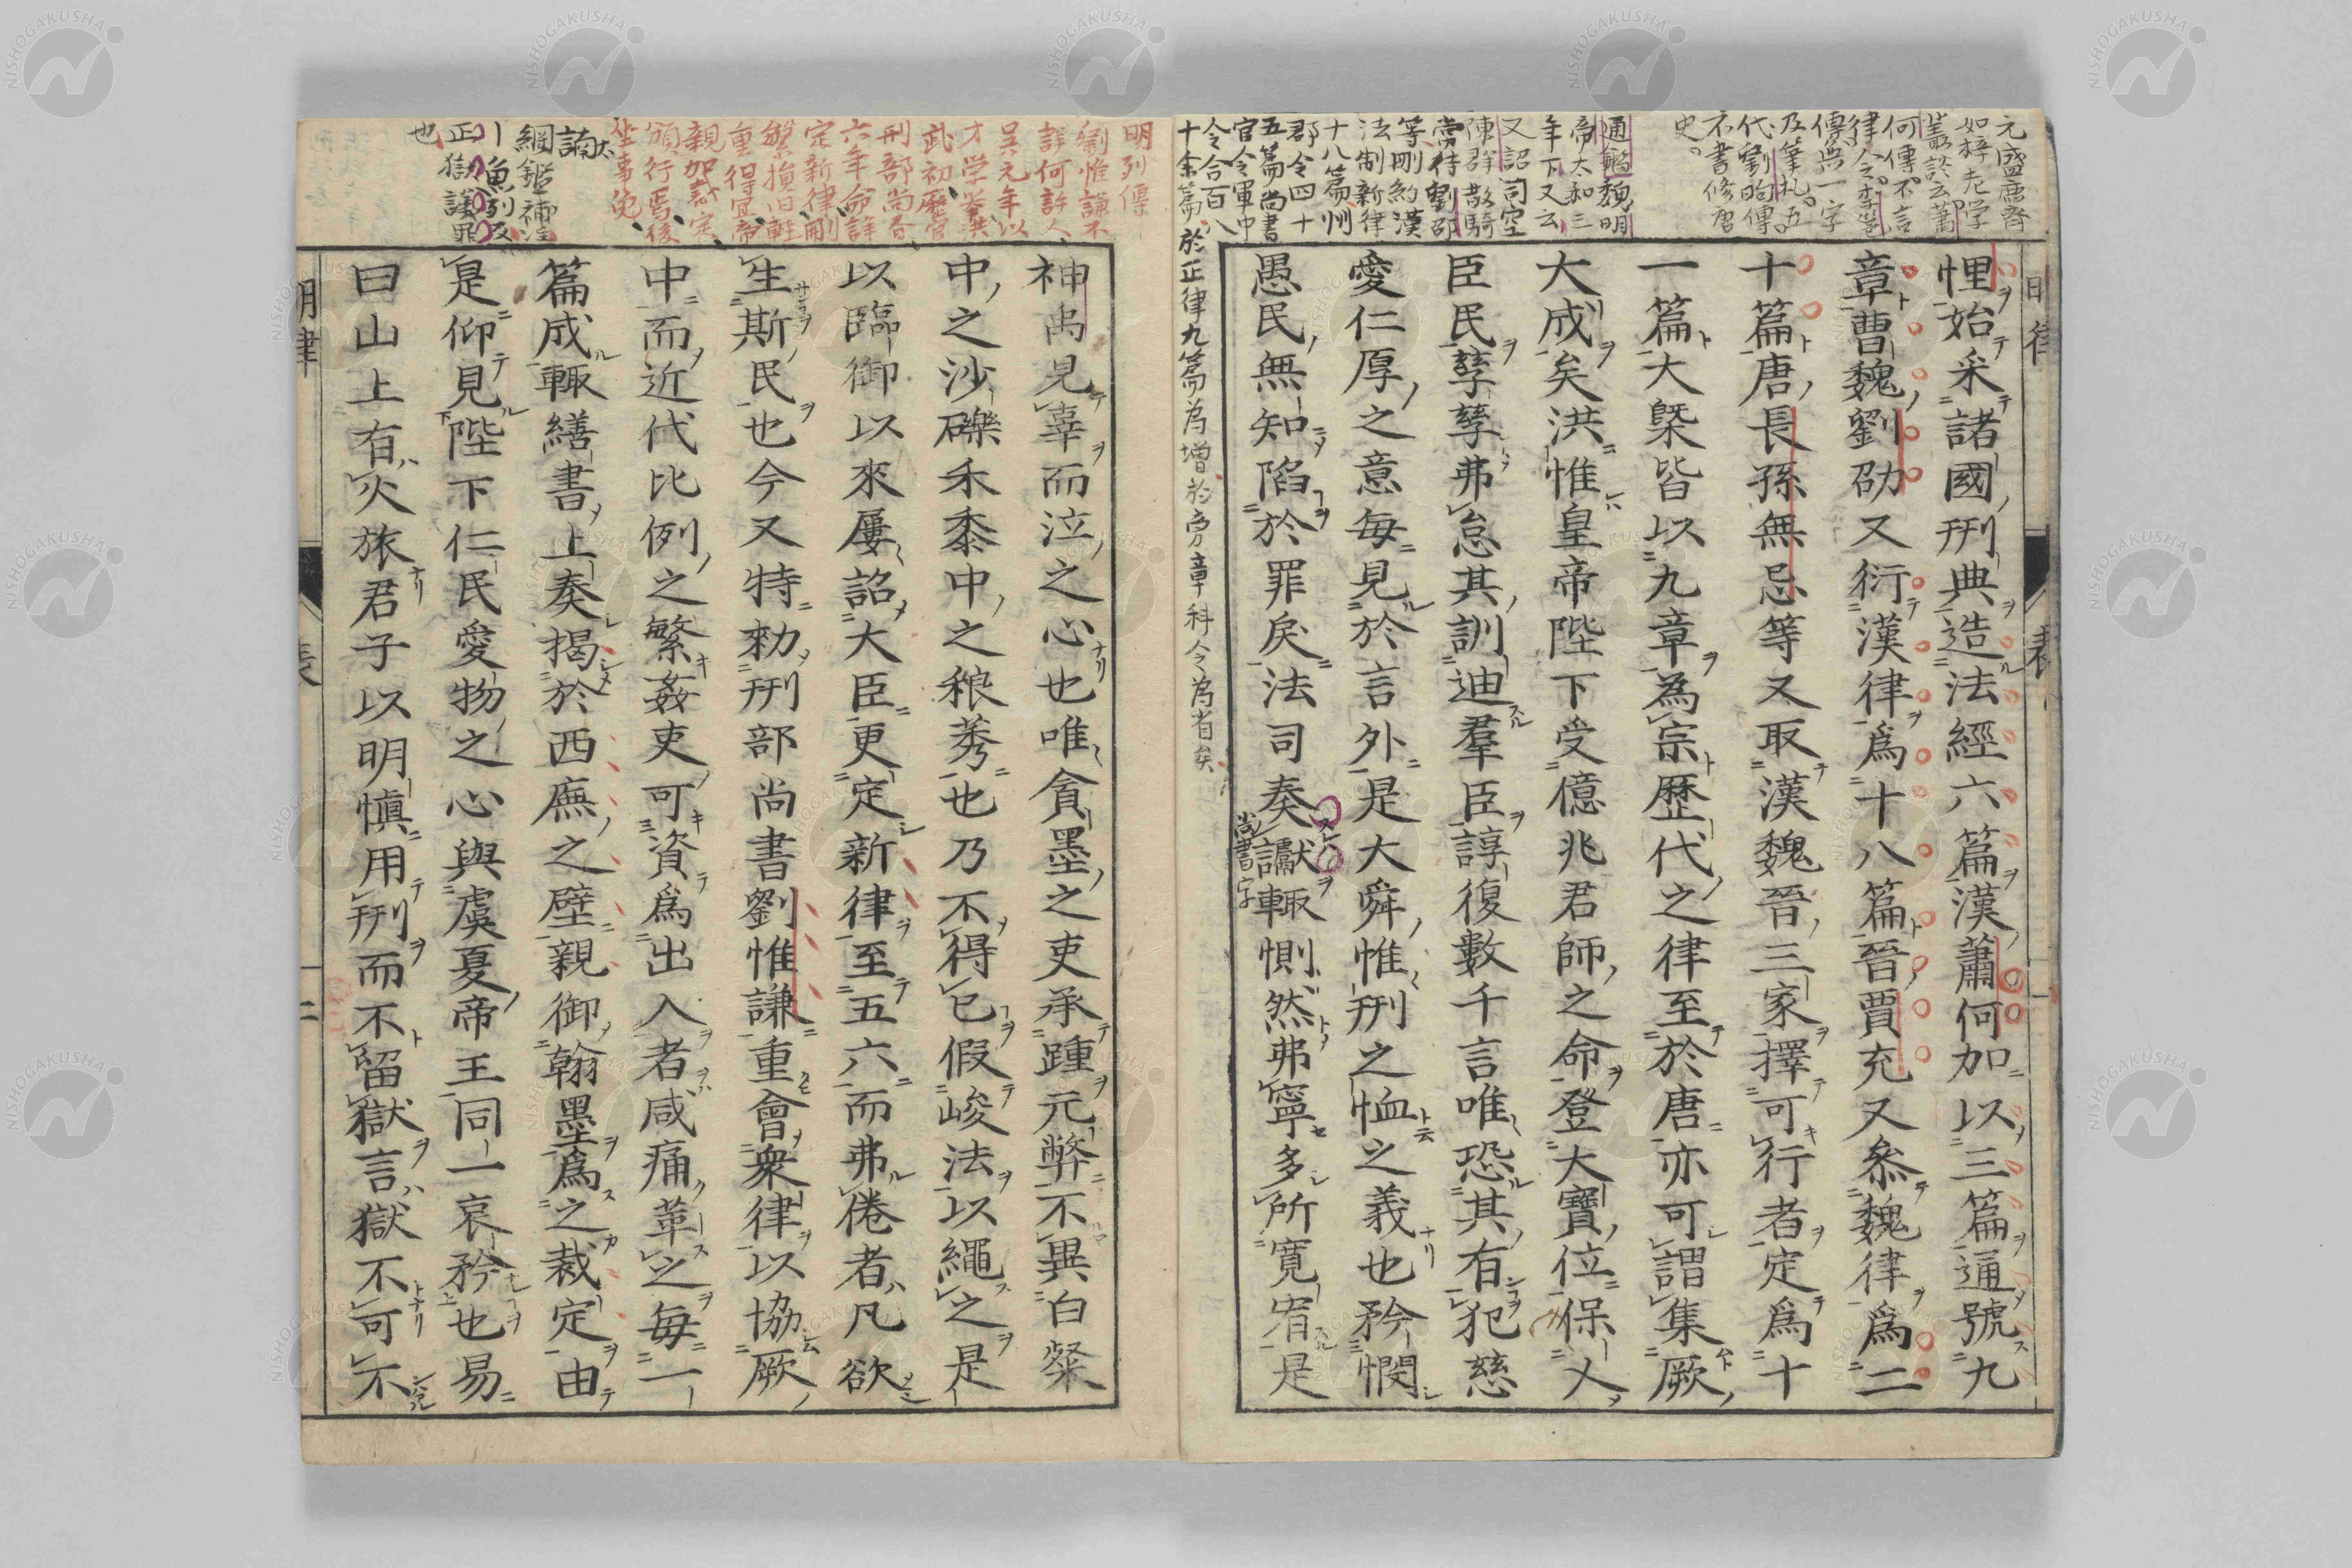 元盛庶齋
如梓老学
叢談云蕭
何傳不言
律令李悝
傳無一字
及筆札五
代劉昫傳
不書修唐
史
通鑑魏明
帝太和三
年下又云
又詔司空
陳群散騎
常侍劉邵
等刪約漢
法制新律
十八篇州
郡令四十
五篇尚書
官令軍中
令合百八
十余篇於正律九篇為增於旁章科令為省矣
悝始采諸國刑典造法經六篇漢蕭何加以三篇通號九
章曹魏劉劭又衍漢律爲十八篇晉賈充又叅魏律爲二
十篇唐長孫無忌等又取漢魏晉三家擇可行者定爲十
一篇大槩皆以九章為宗歷代之律至於唐亦可謂集厥
大成矣洪惟皇帝陛下受億兆君師之命登大寶位保乂
臣民孳孳弗怠其訓迪羣臣諄復數千言唯恐其有犯慈
愛仁厚之意每見於言外是大舜惟刑之恤之義也矜憫
愚民無知陷於罪戾法司奏讞輙惻然弗寧多所寬宥是
尚書字
明列傳
劉惟謙不
詳何許人
吳元年以
才学舉洪
武初歷官
刑部尚書
六年命詳
定新律刪
繁損旧輕
重得宜帝
親加裁定
頒行焉後
坐事免
神禹見辜而泣之心也唯貪墨之吏承踵元弊不異白粲
中之沙礫禾黍中之稂莠也乃不得已假峻法以繩之是
以臨御以來屢詔大臣更定新律至五六而弗倦者凡欲
生斯民也今又特勑刑部尚書劉惟謙重會衆律以協厥
中而近代比例之繁姦吏可資爲出入者咸痛革之每一
篇成輙繕書上奏揭於西廡之壁親御翰墨爲之裁定由
是仰見陛下仁民愛物之心與虞夏帝王同一哀矜也易
曰山上有火旅君子以明愼用刑而不留獄言獄不可不
明律
表
二